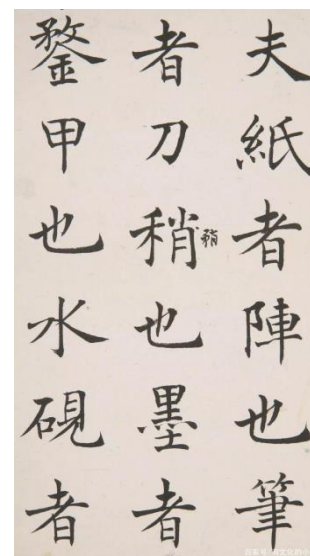 夫紙者陣也筆
者刀稍也墨者
鍪甲也水硯者